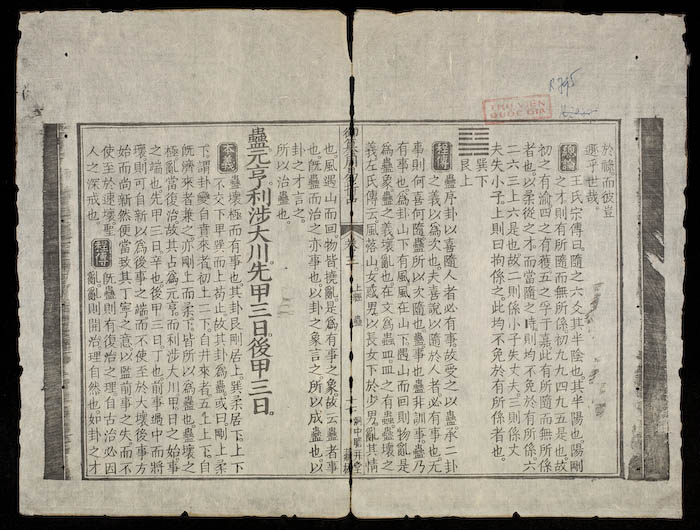 於隨而彼豈
遯乎世哉。
總論 王氏宗傳曰隨之六爻其半陰也其半陽也陽剛
之才則有所隨而無所係初九九四九五是也。故
初之有渝四之有獲五之孚于嘉此有所隨而無所係
者也。以柔從之才而當隨之時則均不免於有所係。六
二六三上六是也故二則係小子失丈夫三則係丈
夫失小子上則曰拘係之此均不免於有所係者也。
巽下
艮上
程傳 蠱序卦以喜隨人者必有事故受之以蠱承二卦
之義以爲次也夫喜說以隨於人者必有事也。无
事則何喜何隨蠱所以次隨也蠱事也蠱非訓事。蠱乃
有事也。爲卦山下有風風在山下遇山而回則物亂是
爲蠱象蠱之義壞亂也在文爲蟲皿皿之有蟲蠱壞之
義左氏傳云風落山女惑男以長女下於少男亂其情
御纂周易折中
卷三
上經 蠱
也風遇山而回物皆撓亂是爲有事之象。故云蠱者事
也旣蠱而治之亦事也。以卦之象言之所以成蠱也。以
卦之才言之
所以治蠱也。
蠱元亨利涉大川。先甲三日。後甲三日。
本義 蠱壞極而有事也。其卦艮剛居上。巽柔居下。上下
不交下卑巽而上苟止故其卦爲蠱或曰剛上柔
下謂卦變自賁來者初上二下自井來者五上上下自
旣濟來者兼之亦剛上而柔下皆所以爲蠱也蠱壞之
極亂當復治故其占爲元亨。而利涉大川甲日之始事
之端也先甲三日辛也。後甲三日丁也前事過中而將
壞則可自新以爲後事之端而不使至於大壞後事方
始而尚新然便當致其丁寧之意以監前事之失而不
使至於速壞聖
人之深戒也。
程傳 旣蠱則有復治之理自古治必因
亂亂則開治理自然也如卦之才
THƯ VIỆN
QUỐC GIA